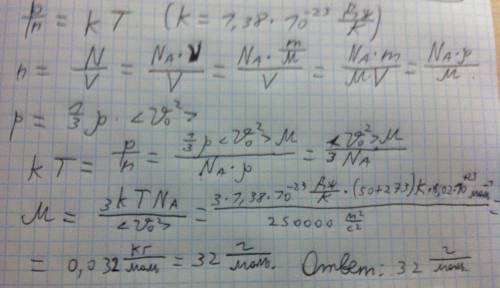 p/n = kT (k = 1,38·10⁻²³ Дж/К)
n = N/V = N_A·ν/V = (N_A·m/M)/V = N_A·m/(M·V) = N_A·ρ/M.
p = 1/3 ρ·<v₀²>
kT = p/n = (1/3 ρ<v₀²>M)/(N_A·ρ) = <v₀²>M/(3N_A)
M = 3kTN_A/<v₀²> = (3·1,38·10⁻²³ Дж/К·(50+273)К·6,02·10⁺²³ моль⁻¹)/(250000 м²/с²) =
= 0,032 кг/моль = 32 г/моль. Ответ: 32 г/моль